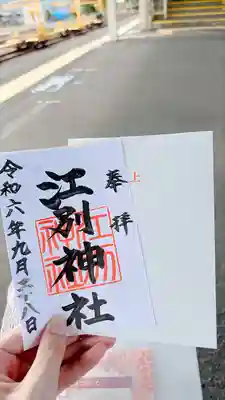 奉拝
上
江別神社
令和六年九月二十八日